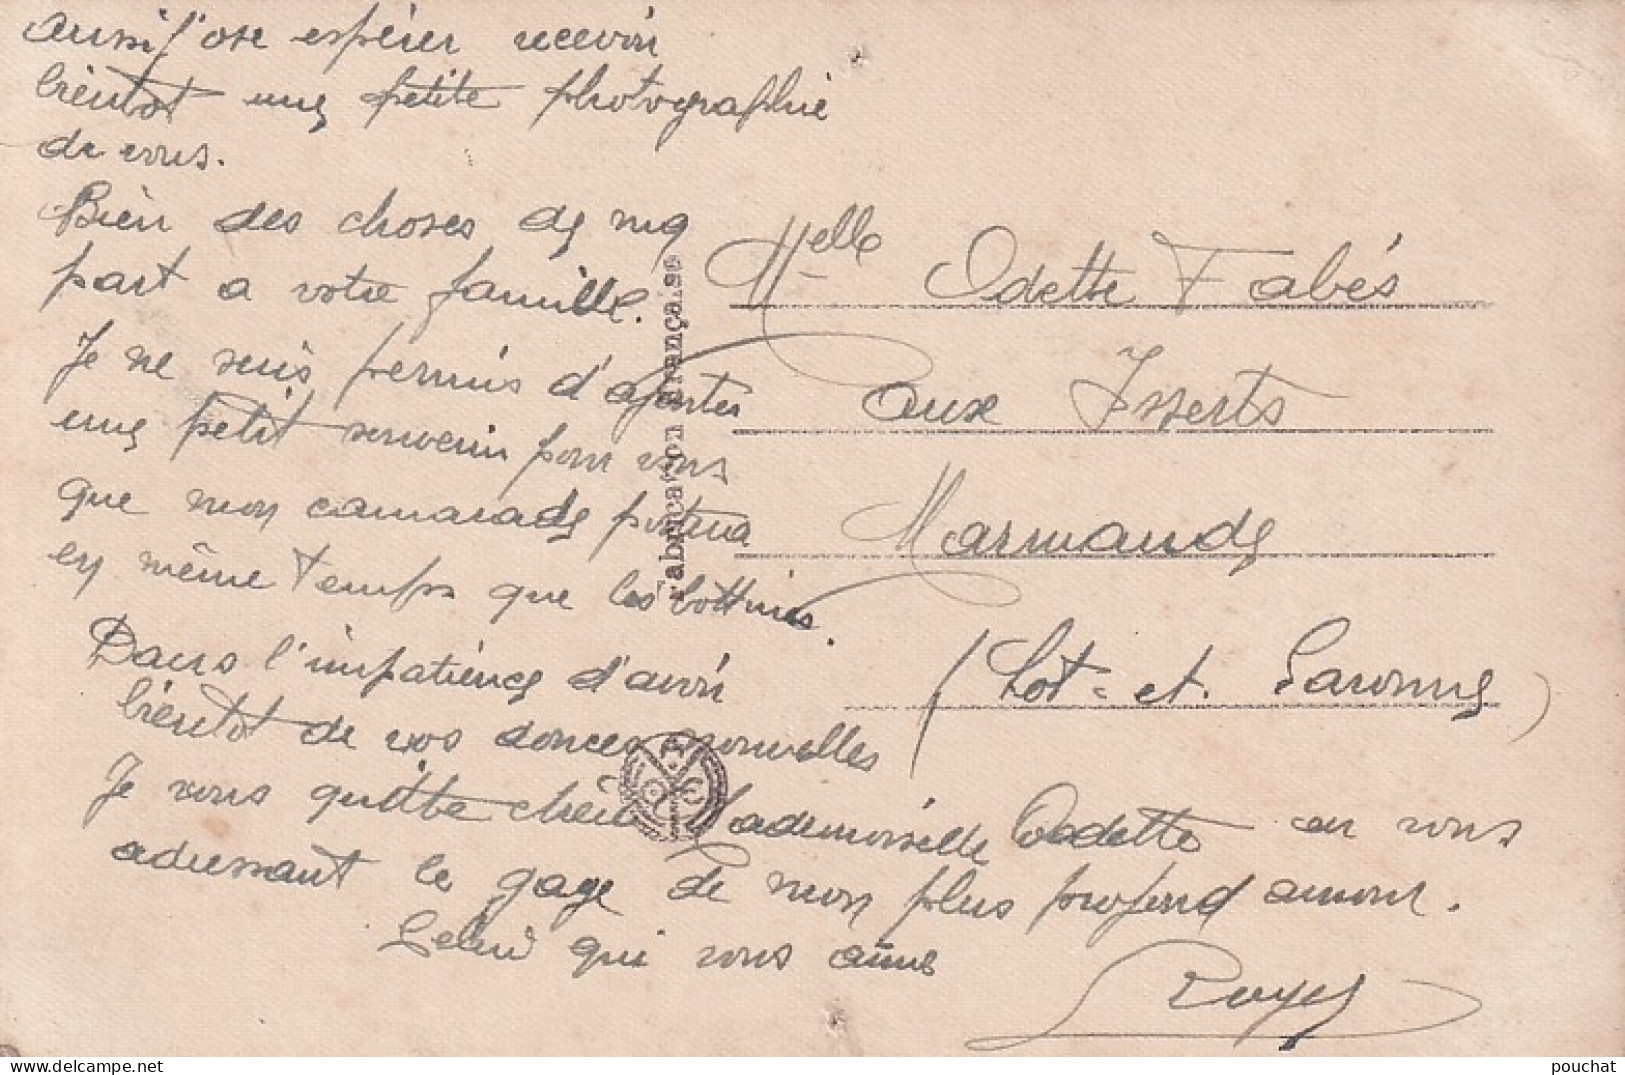 Aussi j'ose espérer recevoir
bientot une petite photographie
de vous.
Bien des choses de ma
part a votre famille.
Je me suis permis d'ajouter
une petit souvenir pour vous
que mon camarade portera
en même temps que les bottines.
Dans l'impatience d'avoir
bientot de vos douces nouvelles
Je vous quitte chère Mademoiselle Odette en vous
adressant le gage de mon plus profond amour.
Celui qui vous aime
Fabrication française
Melle Odette Fabés
aux Isserts
Marmande
(Lot-et-Garonne)
pouchat